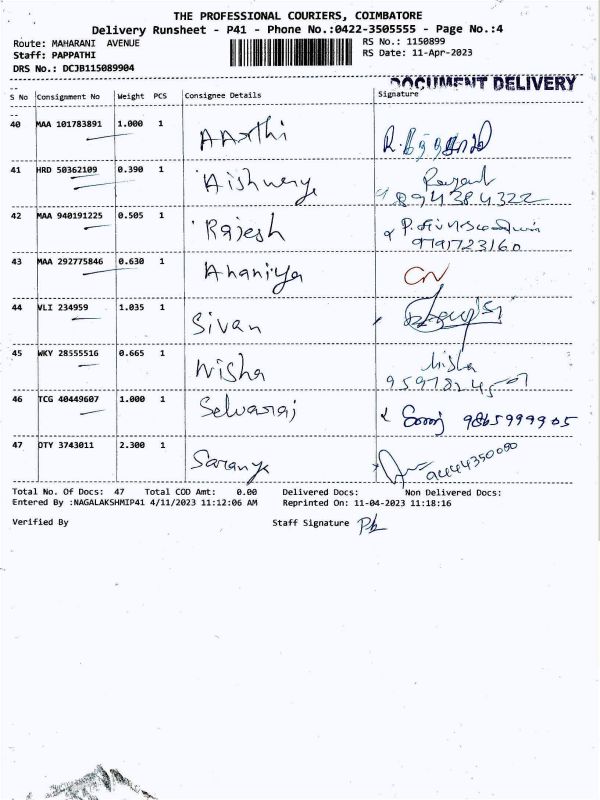 THE PROFESSIONAL COURIERS, COIMBATORE
Delivery Runsheet - P41 - Phone No.:0422-3505555 - Page No.:4
Route: MAHARANI AVENUE
RS No.: 1150899
Staff: PAPPATHI
RS Date: 11-Apr-2023
DRS No.: DCJB115089904
DOCUMENT DELIVERY
S No Consignment No Weight PCS Consignee Details Signature
40 MAA 101783891 1.000 1 AArthi
41 HRD 50362109 0.390 1 Aishwarya
894384322
42 MAA 940191225 0.505 1 Rajesh
9791723160
43 MAA 292775846 0.630 1 Ananiya
44 VLI 234959 1.035 1 Sivan
45 WKY 28555516 0.665 1 Nisha Nisha
46 TCG 40449607 1.000 1 Selvaraj 9865999905
47 DTY 3743011 2.300 1 Saranya
Total No. Of Docs: 47 Total COD Amt: 0.00 Delivered Docs: Non Delivered Docs:
Entered By :NAGALAKSHMIP41 4/11/2023 11:12:06 AM Reprinted On: 11-04-2023 11:18:16
Verified By Staff Signature